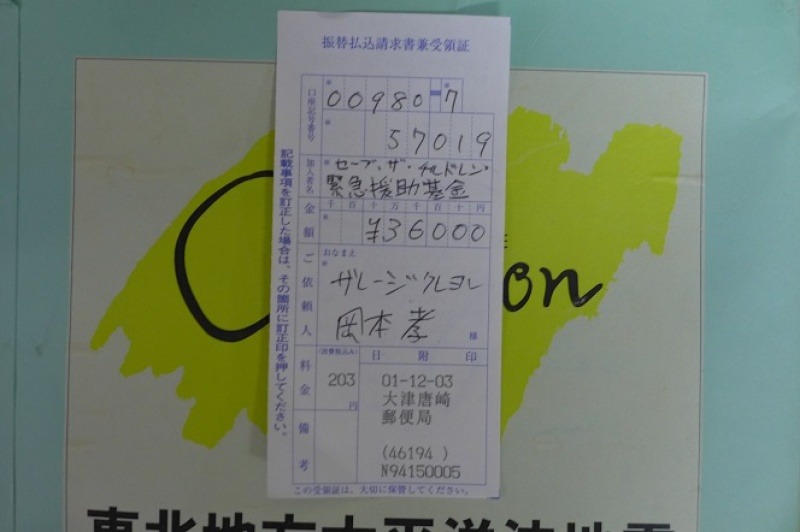 振替払込請求書兼受領証
口座記号番号
00980-7
57019
加入者名
セーブ・ザ・チルドレン
緊急援助基金
金額
千百十万千百十円
¥36000
ご依頼人
おなまえ
ガレージクレヨン
岡本孝
様
料金
(消費税込み)
203
円
日附印
01-12-03
大津唐崎
郵便局
(46194 )
N94150005
備考
この受領証は、大切に保管してください。
記載事項を訂正した場合は、その箇所に訂正印を押してください。
on
東北地方太平洋沖地震